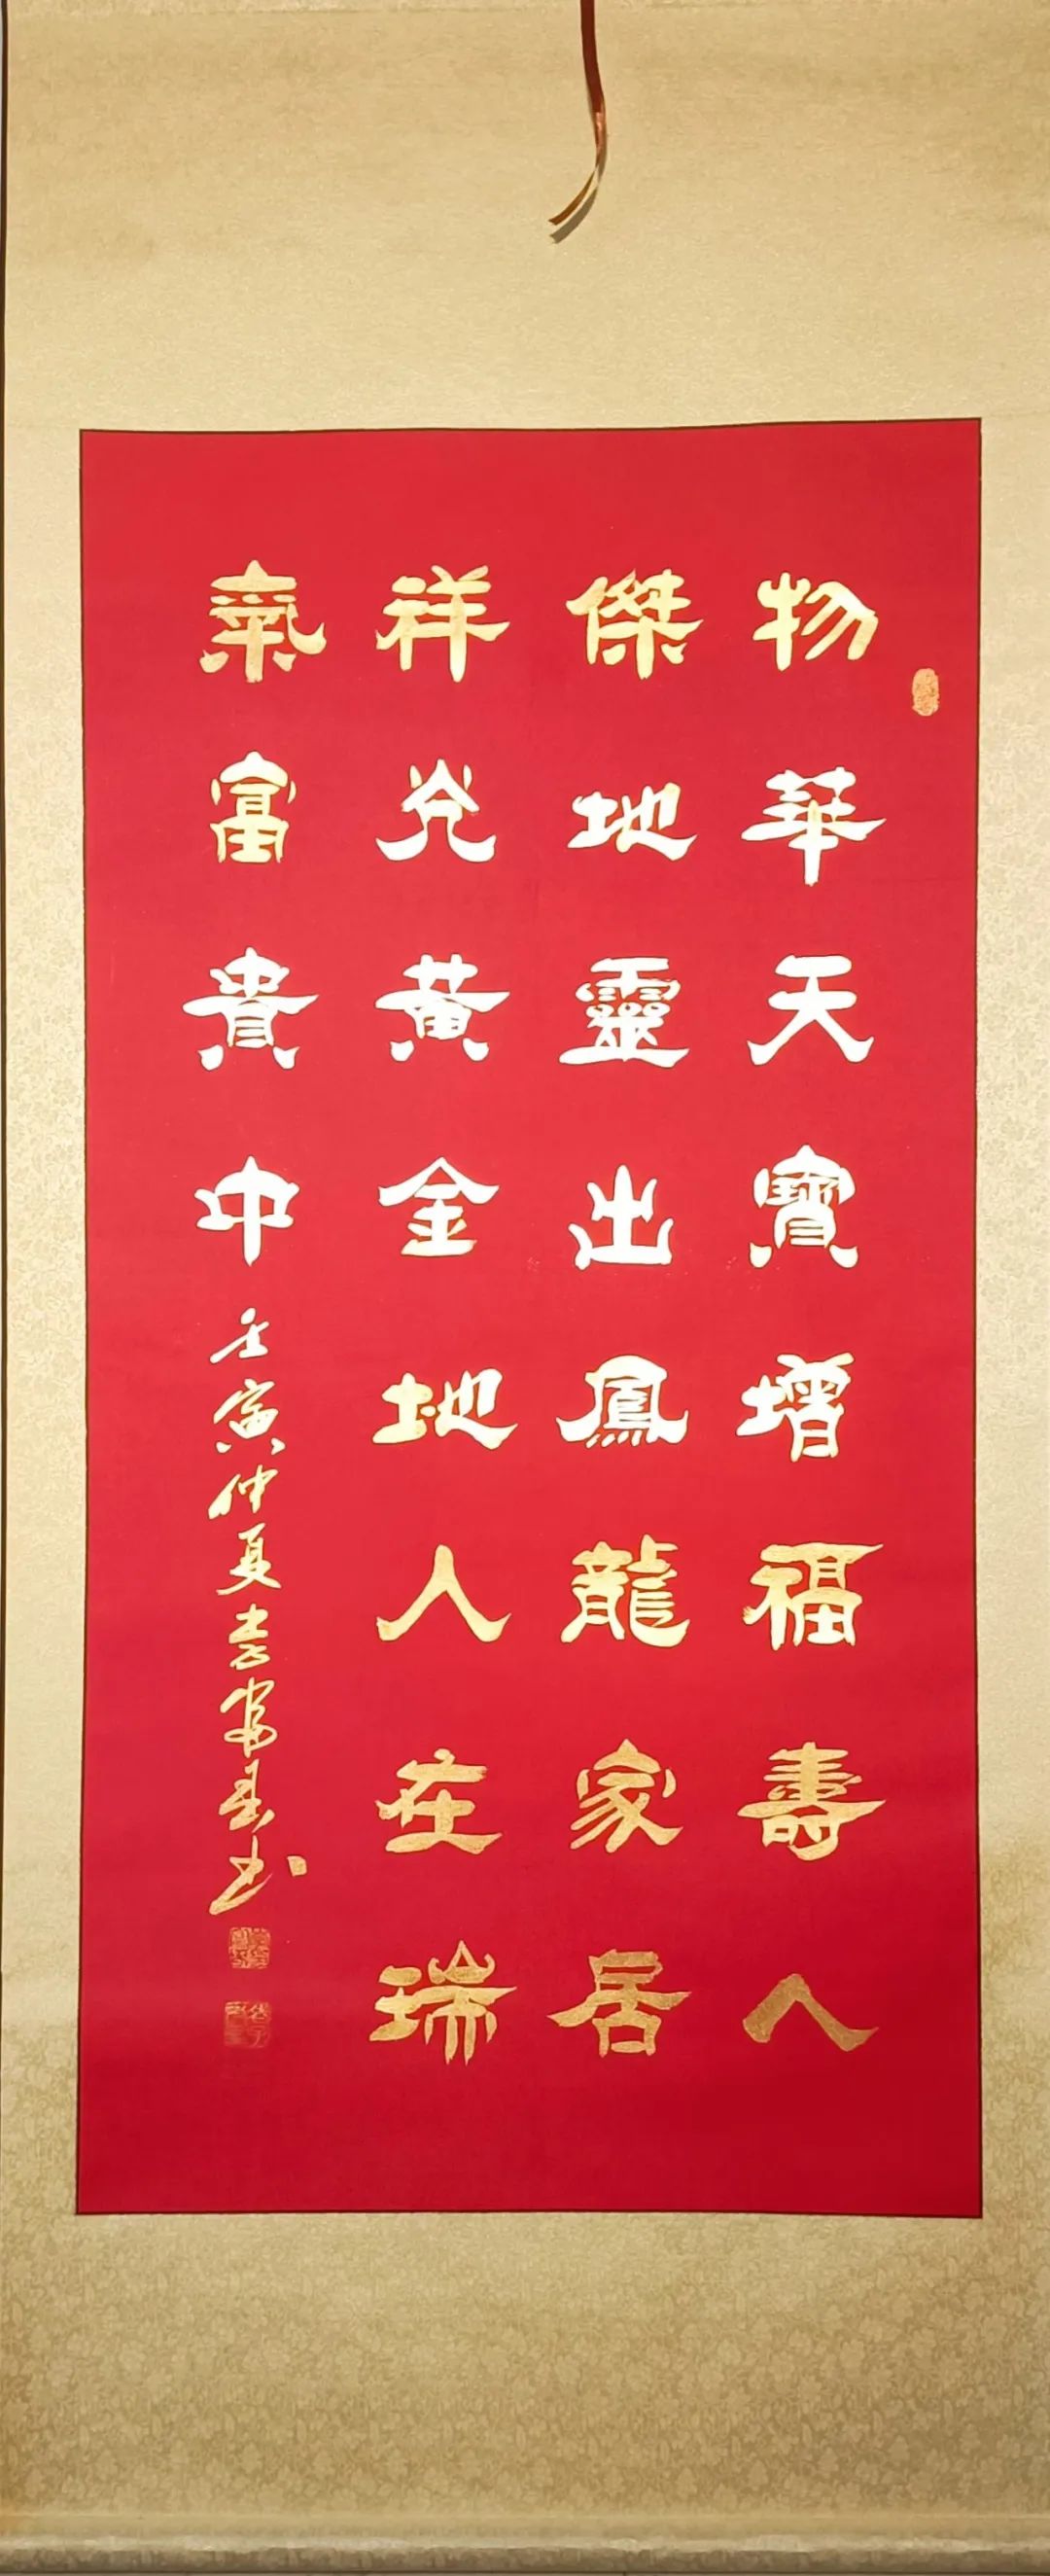 物華天寶增福壽人
傑地靈出鳳龍家居
祥光黃金地人在瑞
氣富貴中壬寅仲夏書